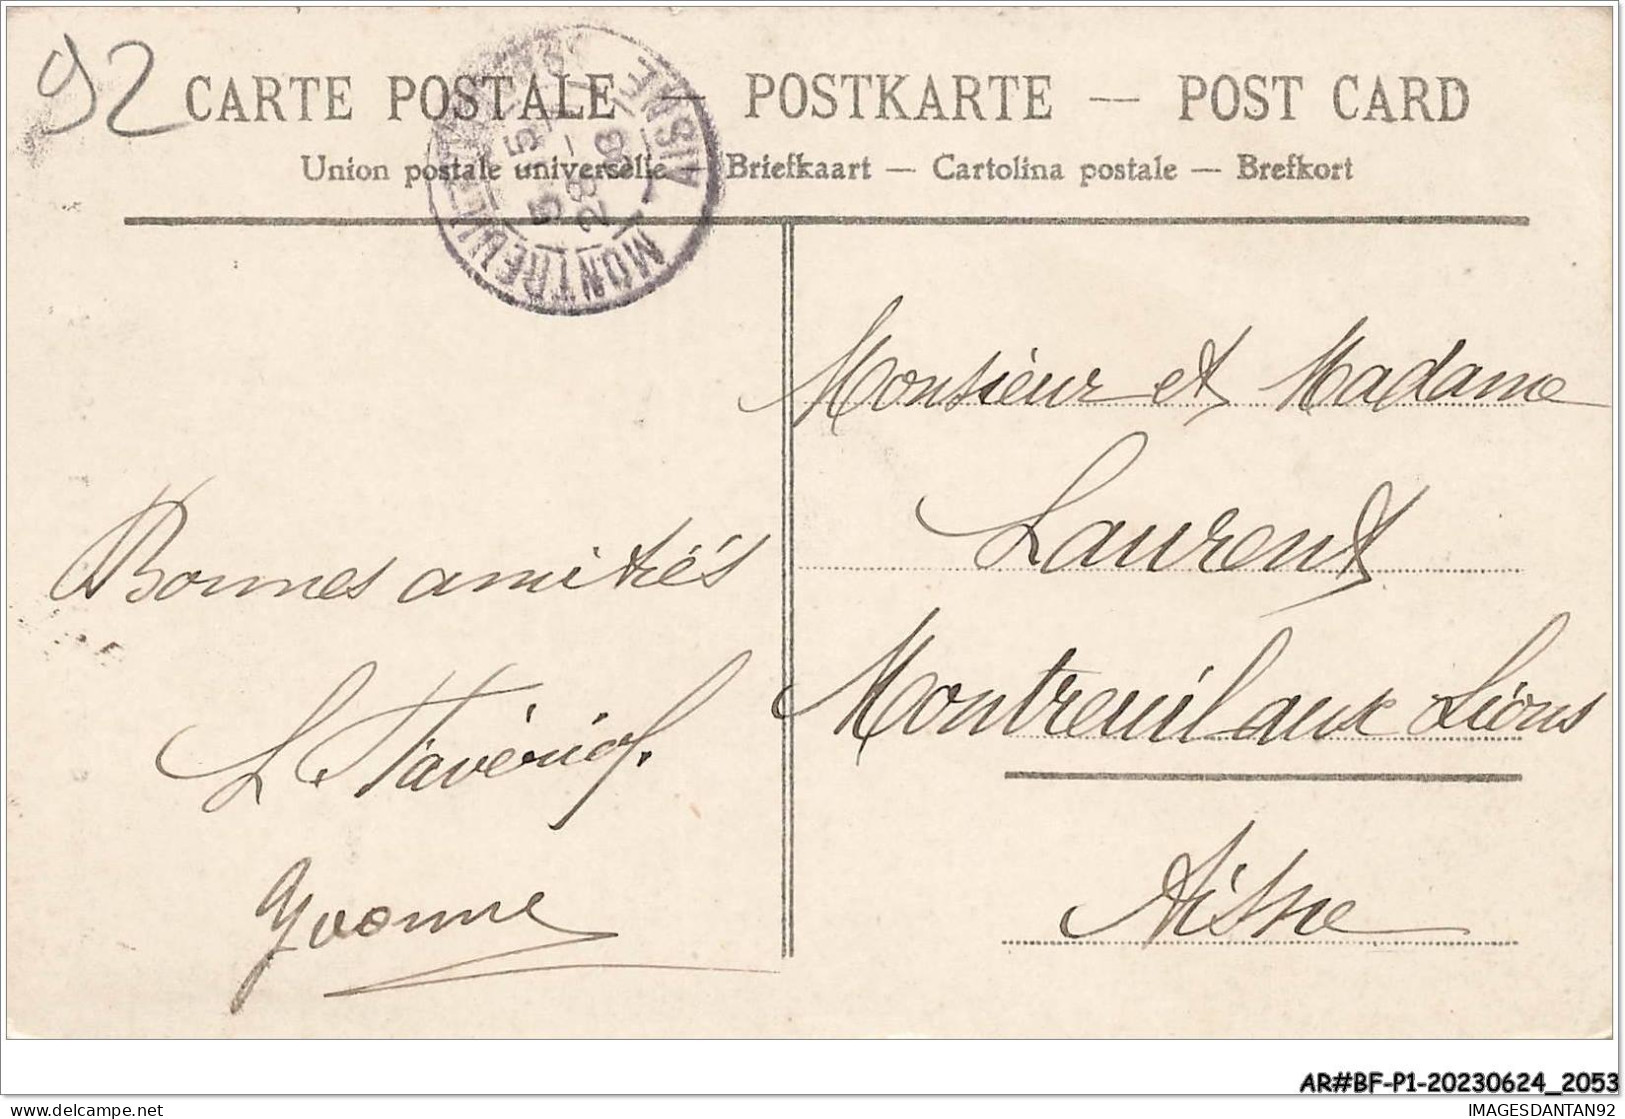 92
CARTE POSTALE — POSTKARTE — POST CARD
Union postale universelle — Briefkaart — Cartolina postale — Brefkort
MONTREUIL
AISNE
Monsieur et Madame
Laurent
Montreuil aux Lions
Aisne
Bonnes amitiés
L
Yvonne
AR#BF-P1-20230624_2053
delcampe.net
IMAGESDANTAN92